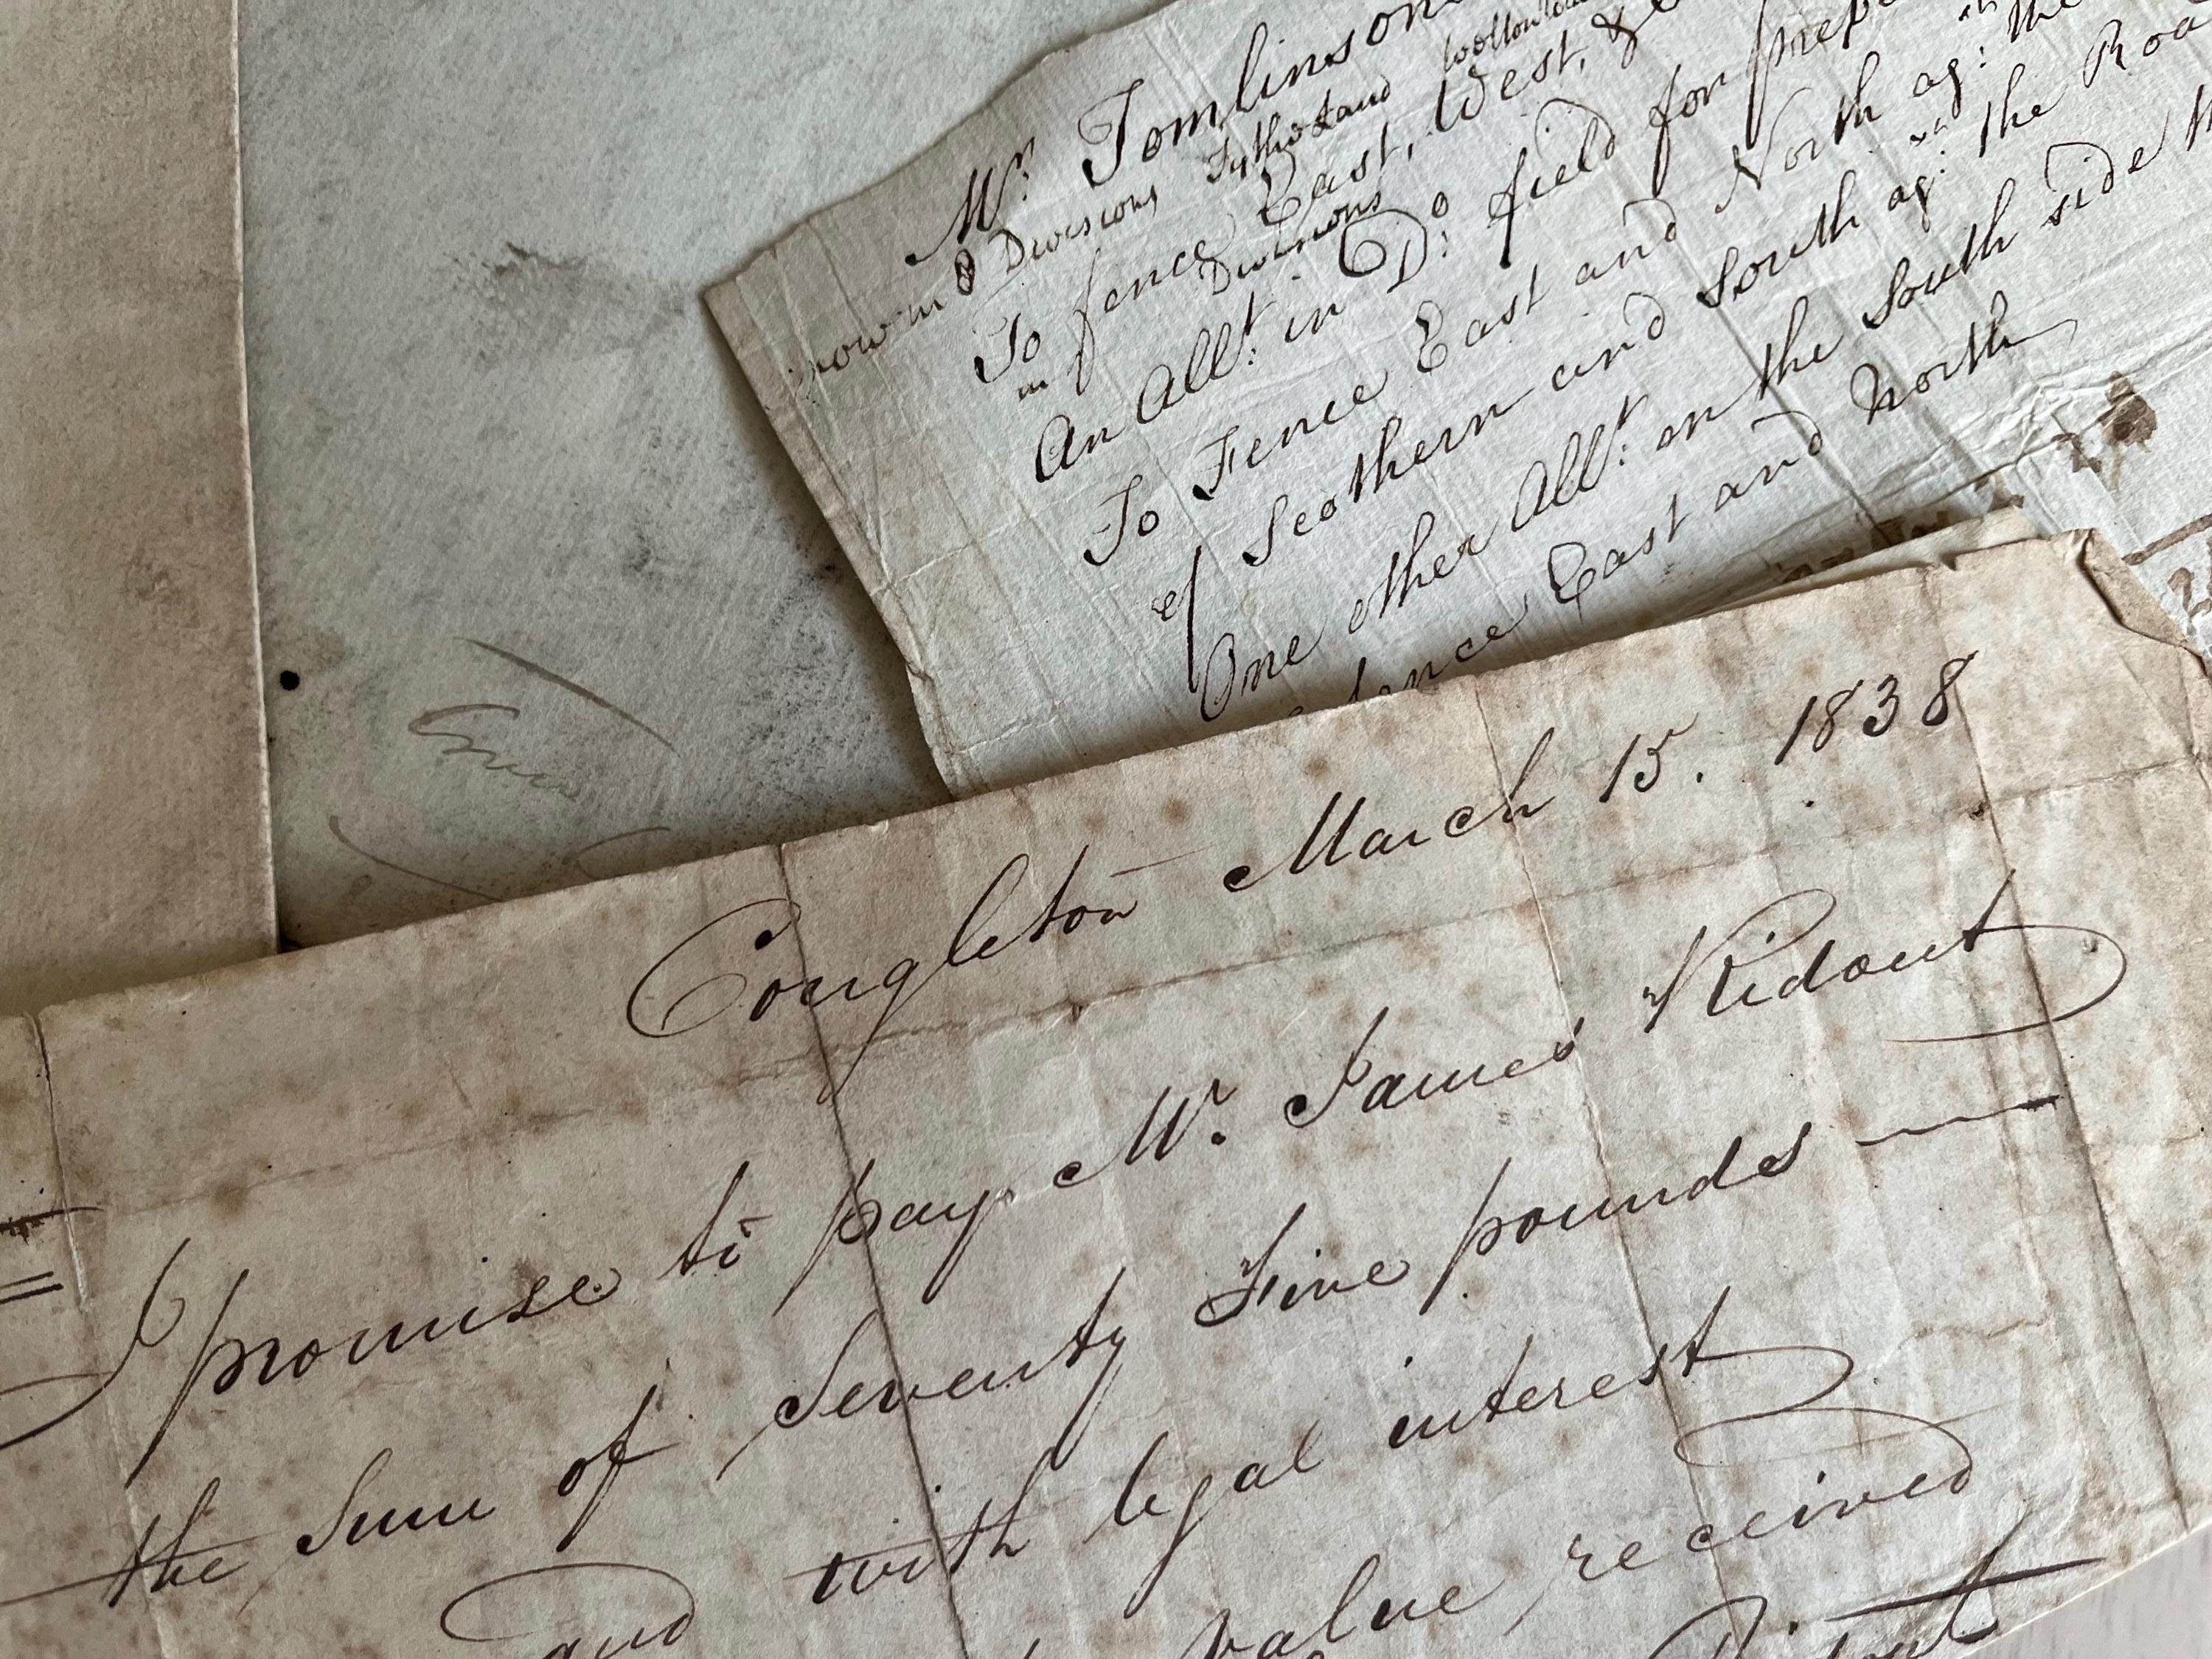 Mr. Tomlinson
now in 8 Divisions
To fence East, West, &
in Divisions
An Allt. in Do. field for
To Fence East and North ag: the
of Scothern and South ag: the Roa
One other Allt. on the South side
fence East and North
Congleton March 15. 1838
I promise to pay Mr. James Ridout
the Sum of Seventy Five pounds
and with legal interest
value received